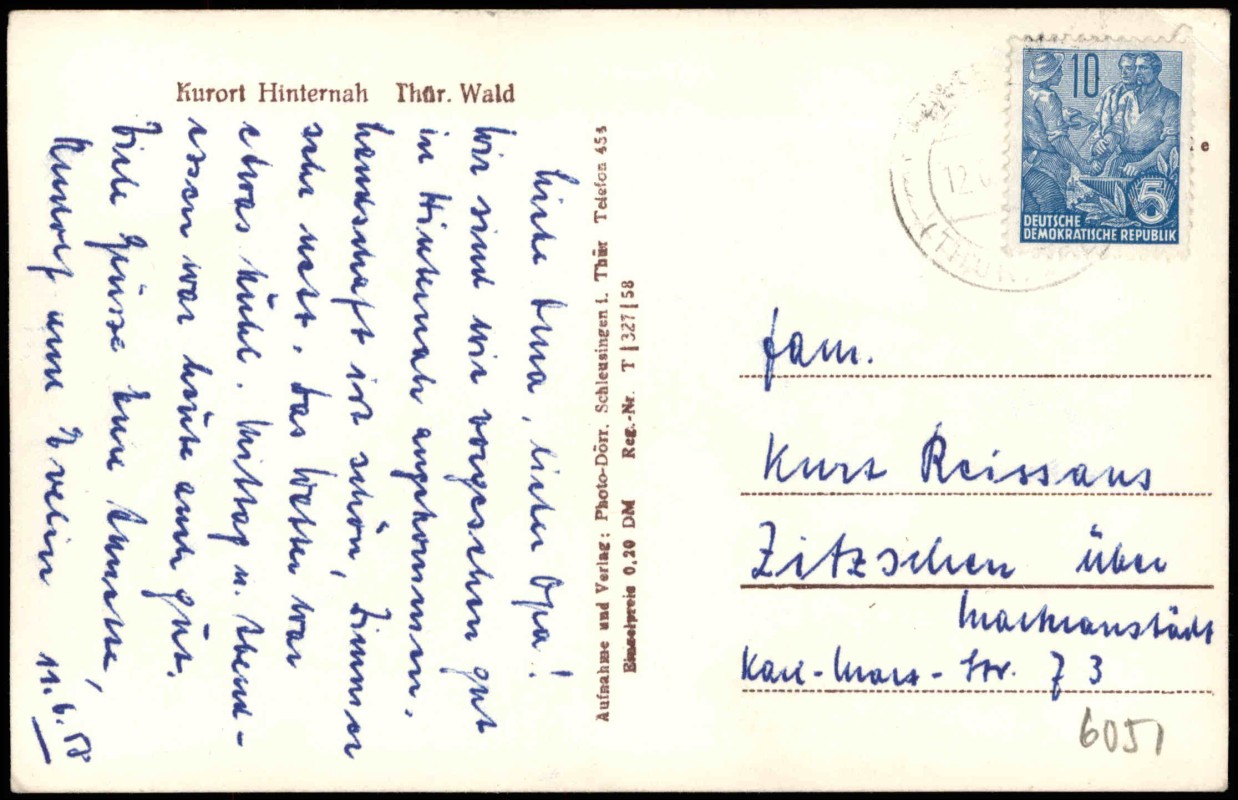 Kurort Hinternah Thür. Wald
Liebe Oma, lieber Opa!
Wir sind wie vorgesehen gut
in Hinternah angekommen.
Landschaft ist schön, Zimmer
sehr nett. Das Wetter war
etwas kühl. Mittag u. Abend-
essen war heute auch gut.
Viele Grüsse Eure
und Evelin 11.6.58
Aufnahme und Verlag: Photo-Dörr, Schleusingen i. Thür Telefon 454
Einzelpreis 0,20 DM Reg.-Nr. T|327|58
10
5
DEUTSCHE
DEMOKRATISCHE REPUBLIK
12
(THÜR
Fam.
Kurt Reissaus
Zitzschen über
Markranstädt
Karl-Marx-Str. 73
6051